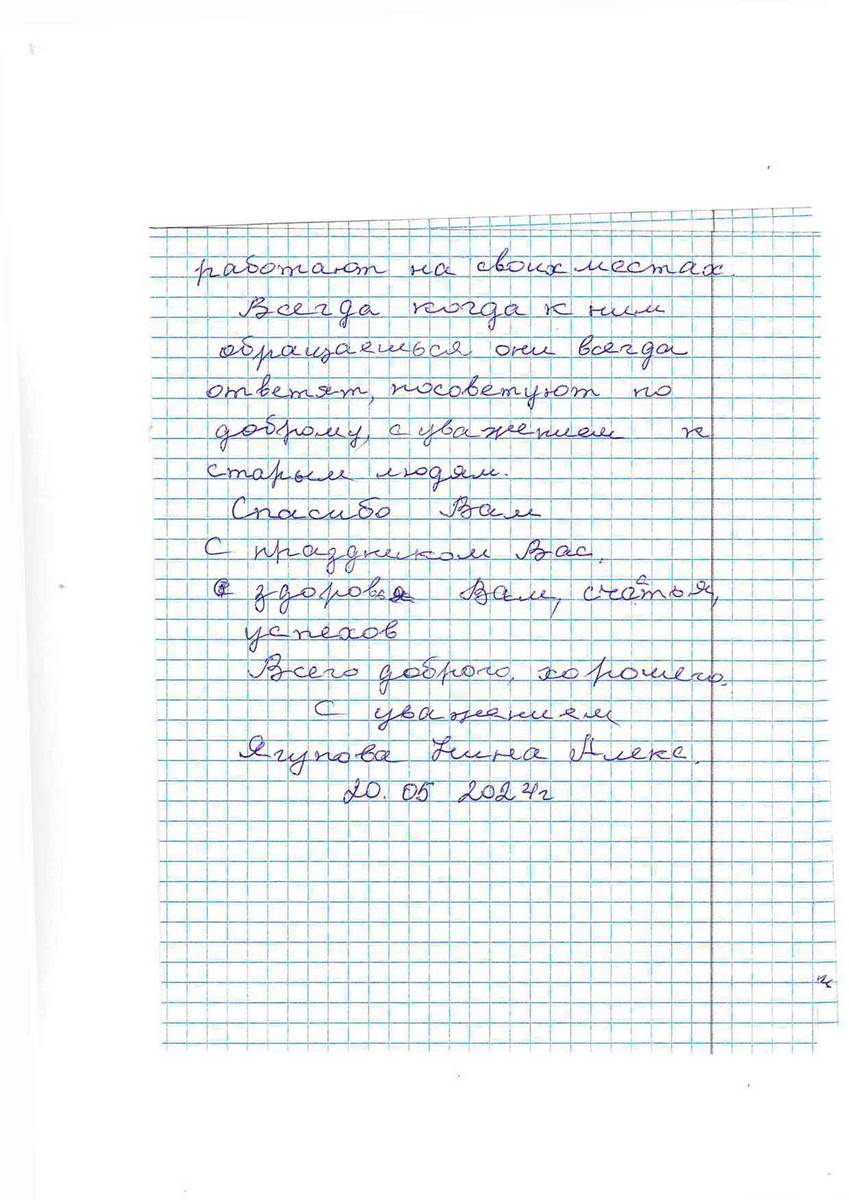 работают на своих местах.
Всегда когда к ним
обращаешься они всегда
ответят, посоветуют по
доброму, с уважением к
старым людям.
Спасибо Вам
С праздником Вас,
здоровья Вам, счастья,
успехов
Всего доброго, хорошего.
С уважением
Ягупова Нина Алекс.
20. 05 2024г